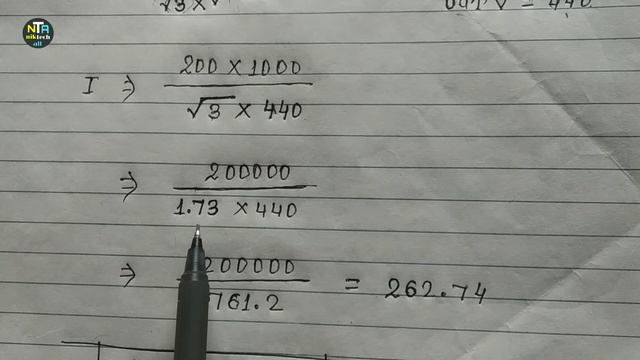 NTA
niktech
all
√3 × V
out V = 440
I ⇒ 200 × 1000
√3 × 440
⇒ 200000
1.73 × 440
⇒ 200000
761.2 = 262.74